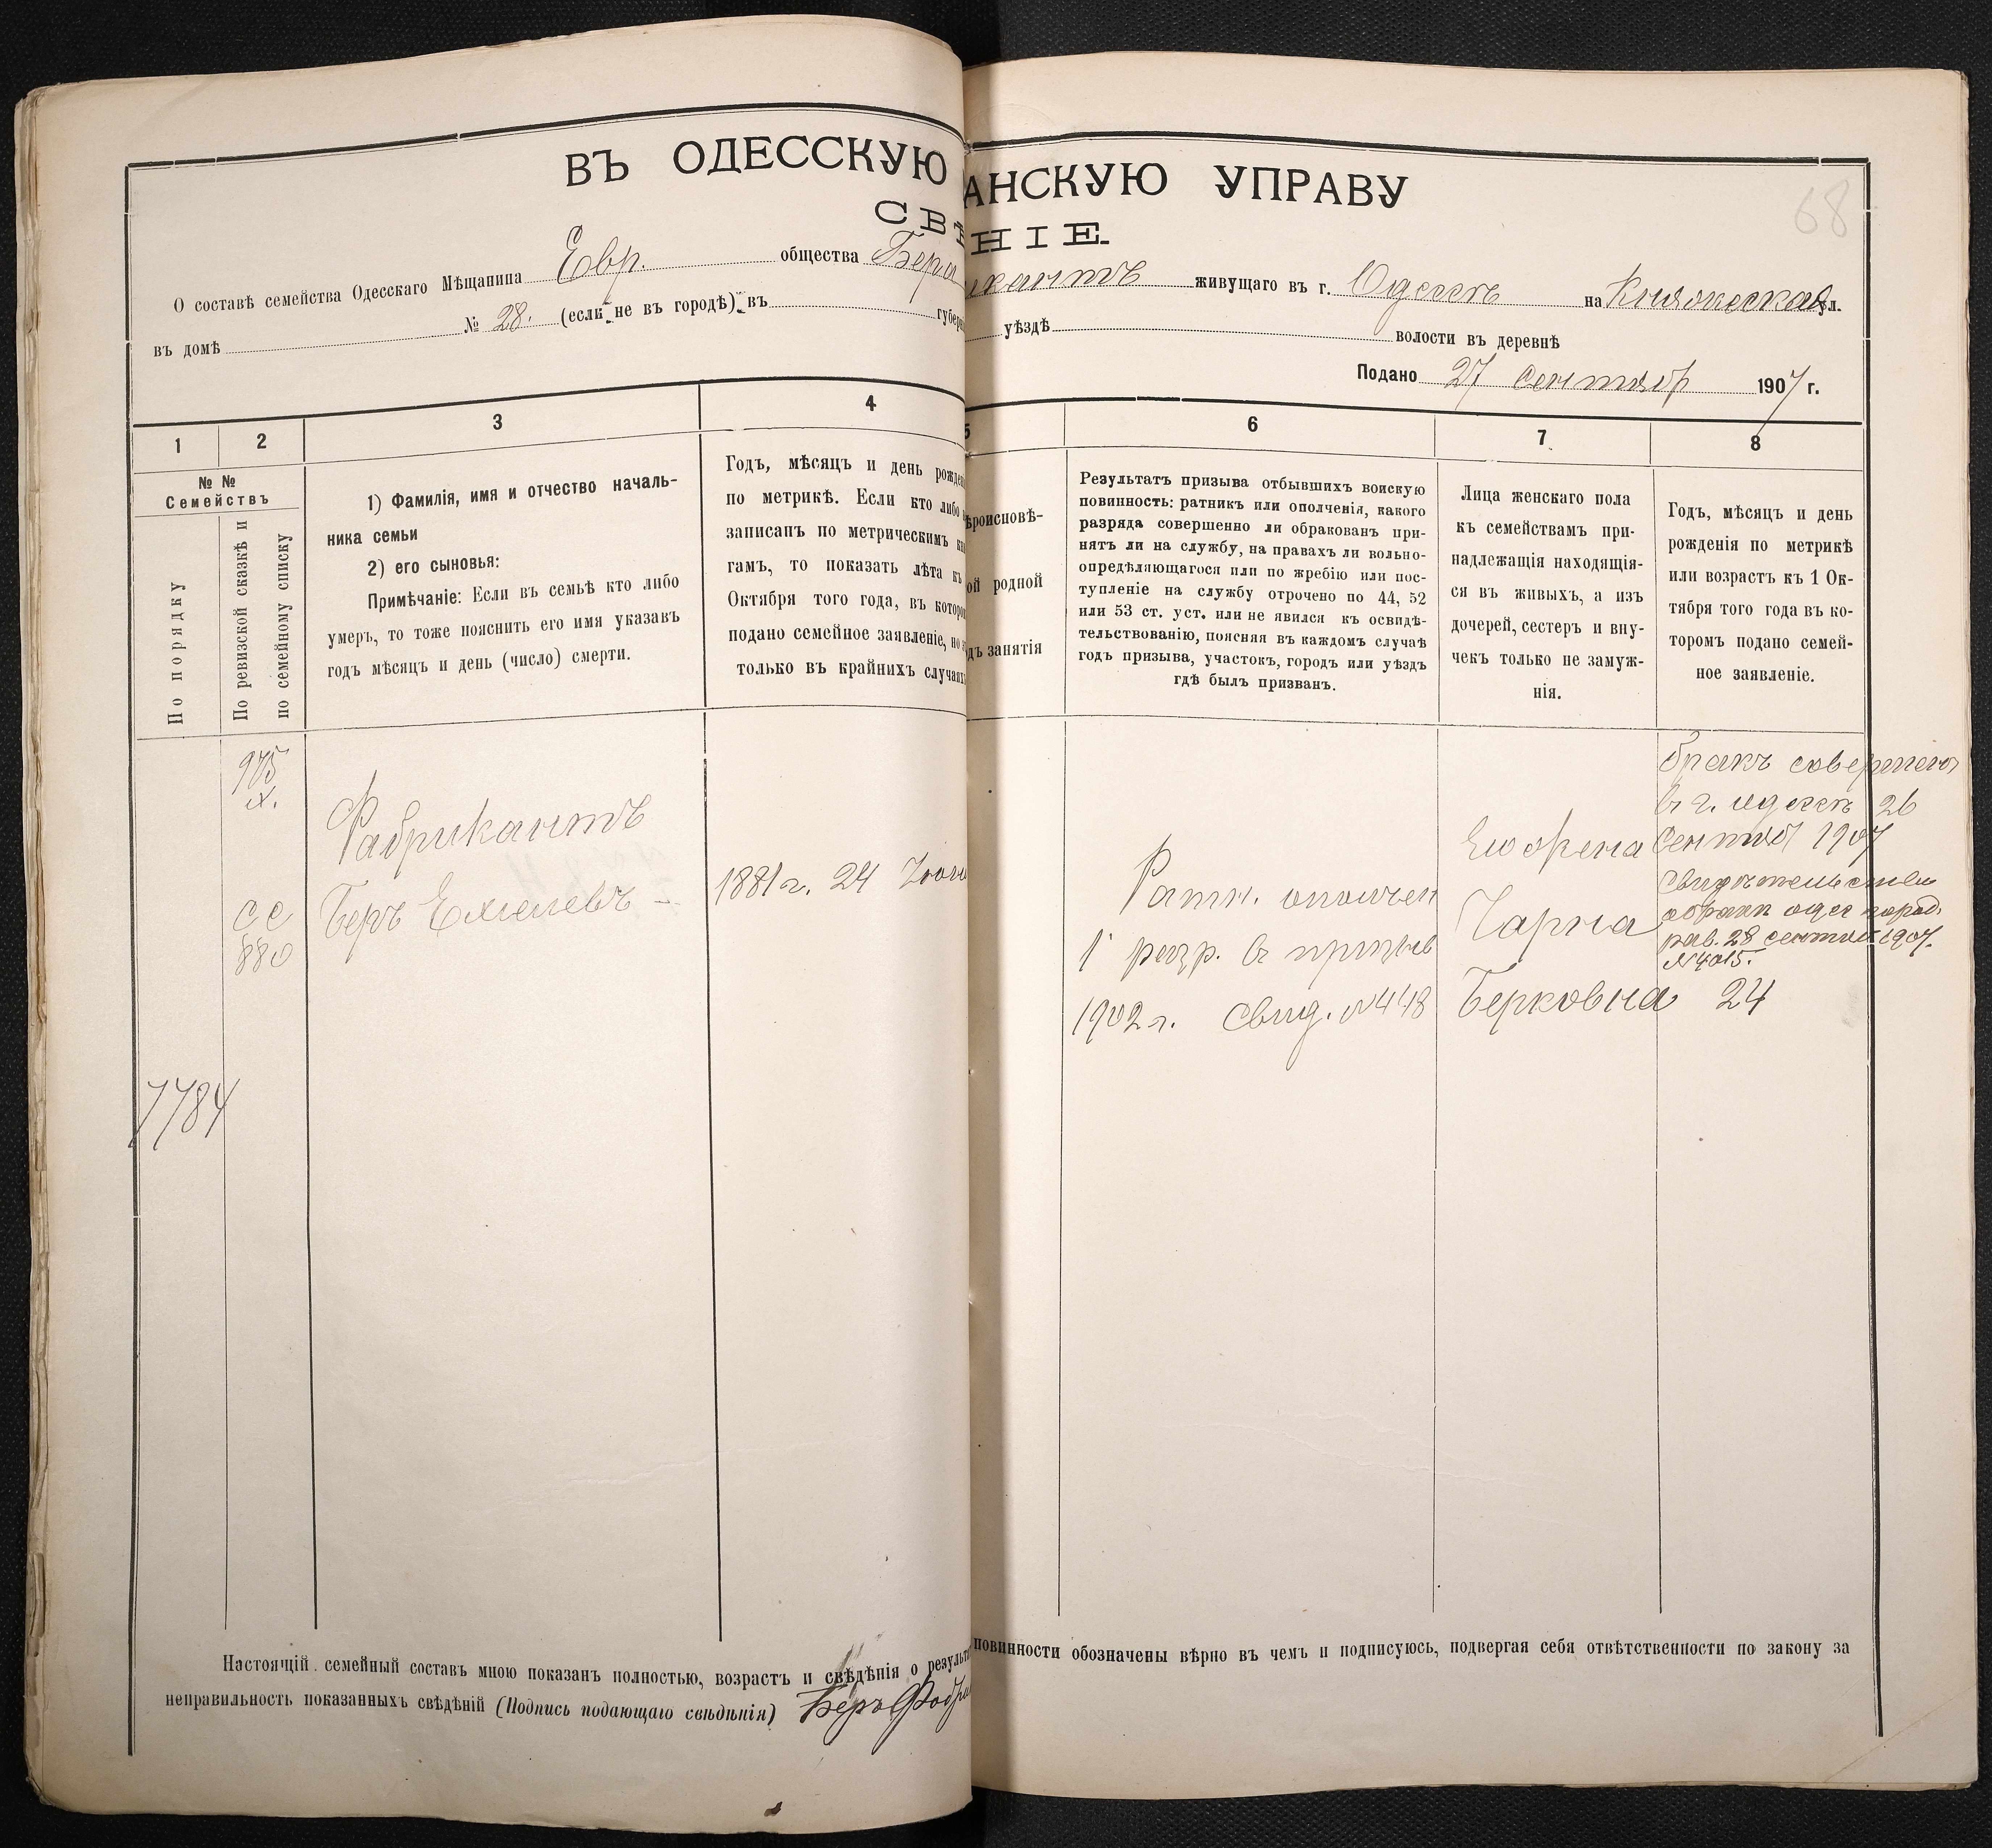 ВЪ ОДЕССКУЮ АНСКУЮ УПРАВУ
СВѢ НІЕ.
68
О составѣ семейства Одесскаго Мѣщанина Евр. общества Бера икантъ живущаго въ г. Одессѣ на Княжеская ул.
въ домѣ № 28. (если не въ городѣ) въ губерн уѣздѣ волости въ деревнѣ
Подано 27 сентябр 1907 г.
1 2 3 4 5 6 7 8
№ №
Семействъ
По порядку
По ревизской сказкѣ и
по семейному списку
1) Фамилія, имя и отчество началь-
ника семьи
2) его сыновья:
Примѣчаніе: Если въ семьѣ кто либо
умеръ, то тоже пояснить его имя указавъ
годъ мѣсяцъ и день (число) смерти.
Годъ, мѣсяцъ и день рожде
по метрикѣ. Если кто либо
записанъ по метрическимъ кн
гамъ, то показать лѣта къ
Октября того года, въ которо
подано семейное заявленіе, но э
только въ крайнихъ случаях
ѣроисповѣ-
ой родной
дъ занятія
Результатъ призыва отбывшихъ воискую
повинность: ратникъ или ополченія, какого
разряда совершенно ли обракованъ при-
нятъ ли на службу, на правахъ ли вольно-
опредѣляющагося или по жребію или пос-
тупленіе на службу отрочено по 44, 52
или 53 ст. уст. или не явился къ освидѣ-
тельствованію, поясняя въ каждомъ случаѣ
годъ призыва, участокъ, городъ или уѣздъ
гдѣ былъ призванъ.
Лица женскаго пола
къ семействамъ при-
надлежащія находящія-
ся въ живыхъ, а изъ
дочерей, сестеръ и вну-
чекъ только не замуж-
нія.
Годъ, мѣсяцъ и день
рожденія по метрикѣ
или возрастъ къ 1 Ок-
тября того года въ ко-
торомъ подано семей-
ное заявленіе.
975
х.
Фабрикантъ
сс
880
Беръ Ехилевъ
1881 г. 24 Іюн
Ратн. ополчен
1 разр. в призыв
1902 г. Свид. №448
Его жена
Чарна
Берковна 24
бракъ совершен
в г. Одессѣ 26
Сентяб 1907
Свидѣтельство
о бракѣ одес город.
рав. 28 сентяб 1907.
№4015.
7784
Настоящій семейный составъ мною показанъ полностью, возрастъ и свѣдѣнія о результ повинности обозначены вѣрно въ чемъ и подписуюсь, подвергая себя отвѣтственности по закону за
неправильность показанныхъ свѣдѣній (Подпись подающаго свѣдѣнія) Беръ Фабри